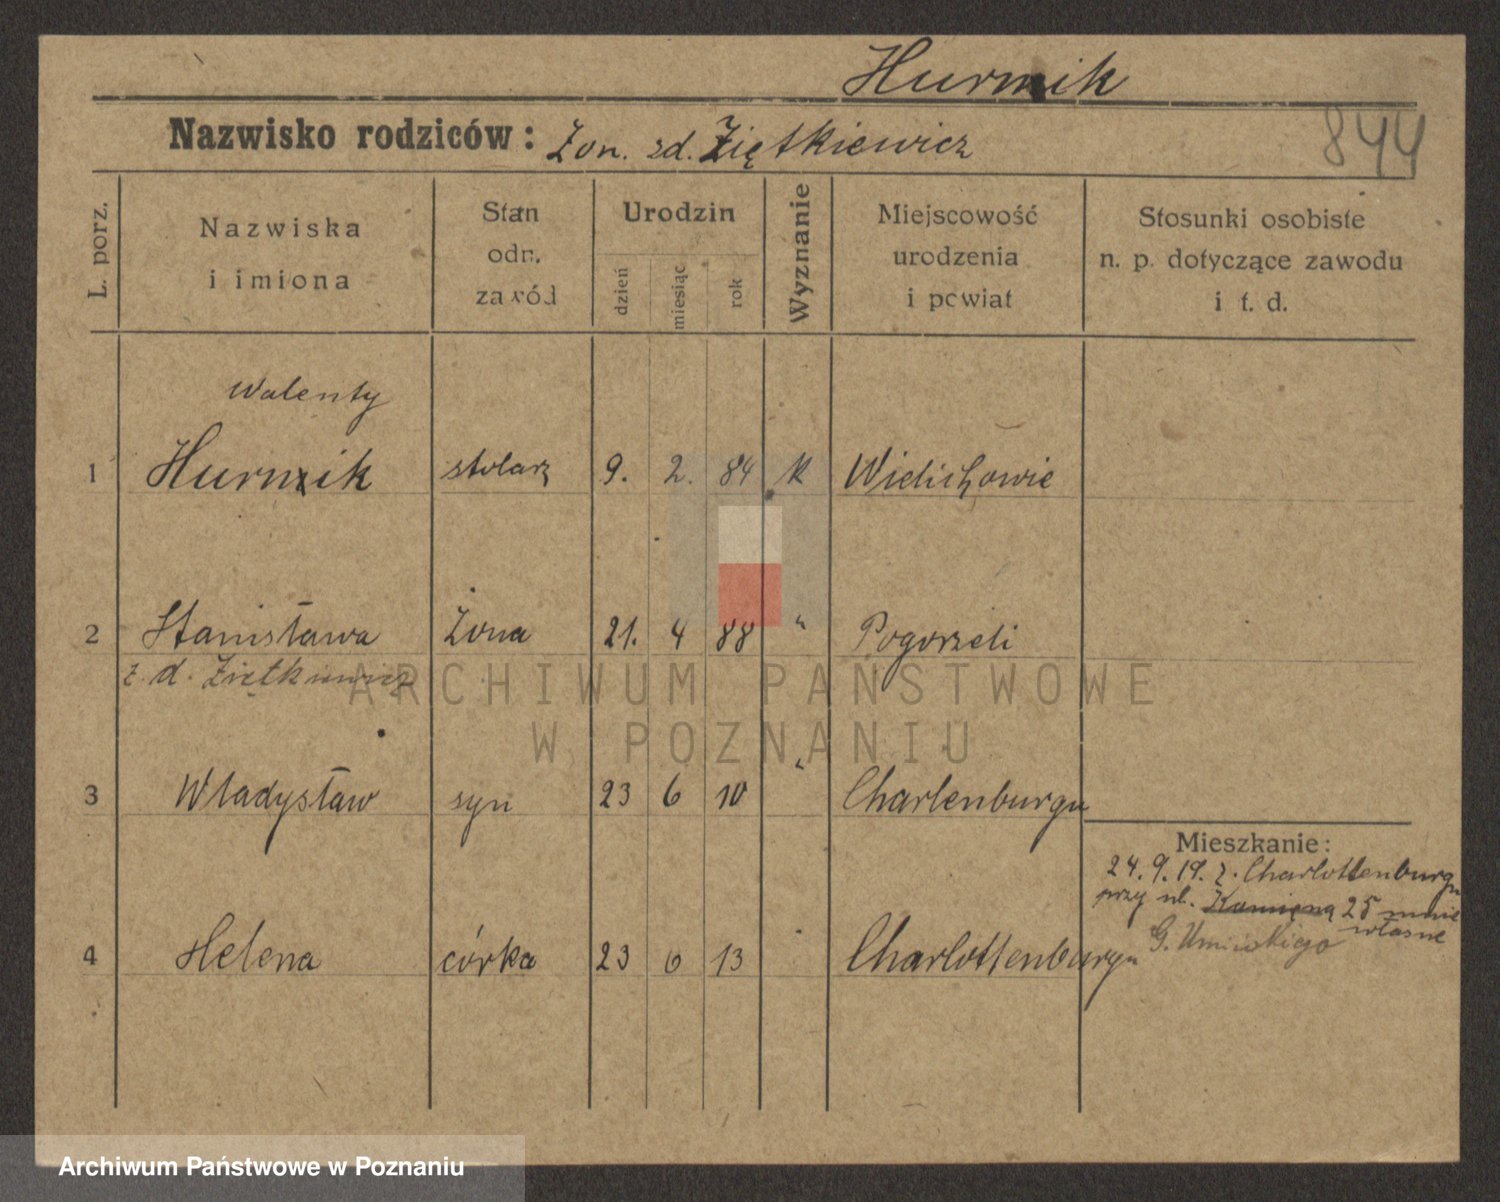 Hurnik
Nazwisko rodziców: Żon. zd. Ziętkiewicz
844
L. porz.
Nazwiska
i imiona
Stan
odn.
zawód
Urodzin
dzień
miesiąc
rok
Wyznanie
Miejscowość
urodzenia
i powiat
Stosunki osobiste
n. p. dotyczące zawodu
i t. d.
Walenty
1 Hurnik stolarz 9. 2. 84 k Wielichowie
2 Stanisława żona 21. 4 88 " Pogorzeli
z. d. Ziętkiewicz
3 Władysław syn 23 6 10 " Charlenburgu
Mieszkanie:
24. 9. 19. z. Charlottenburgu
przy ul. Kamienną 25
własne
G. Umińskiego
4 Helena córka 23 6 13 Charlottenburgu
ARCHIWUM PAŃSTWOWE
W POZNANIU
Archiwum Państwowe w Poznaniu